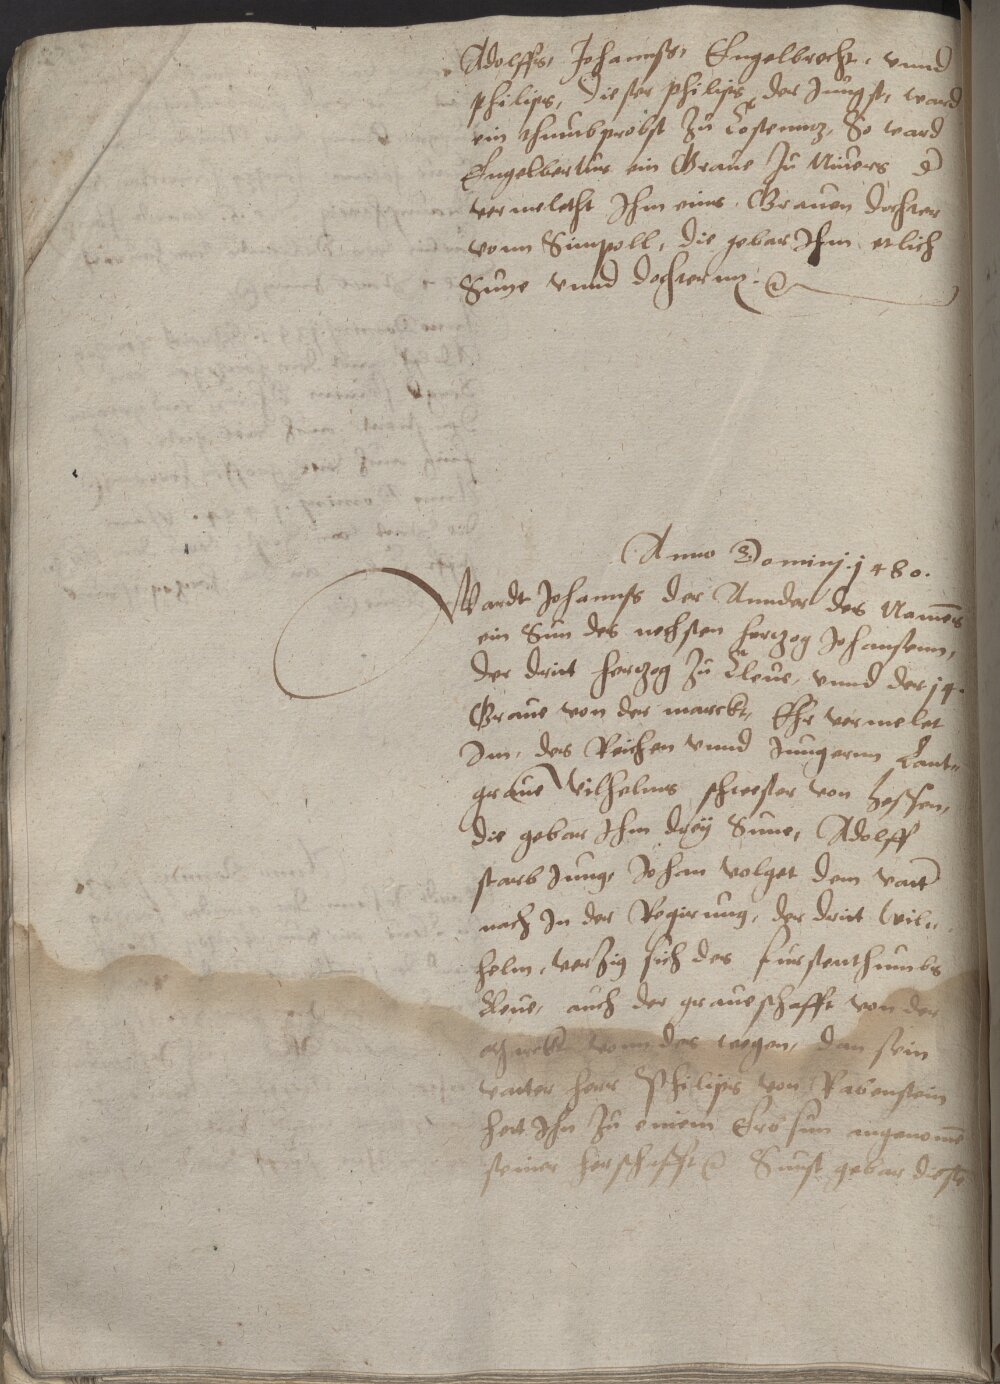 Adolffs, Johannß, Engelbrecht, vnnd
Philips, dieser Philips der Jungst, ward
ein thumbprobst Zu Costenntz, So ward
Engelbertus ein Graue Zu Niuers, d
vermeleth Ihm eins Grauen dochter
vonn Simpoll, die gebar Ihm etlich
Sune vnnd dochternn.
Anno Dominj. 1480.
Wardt Johannß der Annder des Namens
ein Sun des nechsten hertzog Johansenn,
der drit hertzog Zu Cleue, vnnd der 14.
Graue von der marckt, Ehr vermelet
Im, des Reichen vnnd Jungernn Lant-
graue Wilhelms schwester von Hessen,
die gebar Ihm dreÿ Sune, Adolff
starb Jung, Johan volget dem vatt
nach In der Regirung, der drit Wil-
helm, verzig sich des furstenthumbs
Cleue, auch der graueschafft von der
Marckt vonn des wegen, dan sein
vatter herr Philips von Rabenstein
hett Ihn Zu einem Erbsun angenomē
seiner herschafft Sunst gebar diese